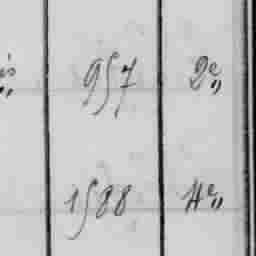 957 2e„
1588 4e„